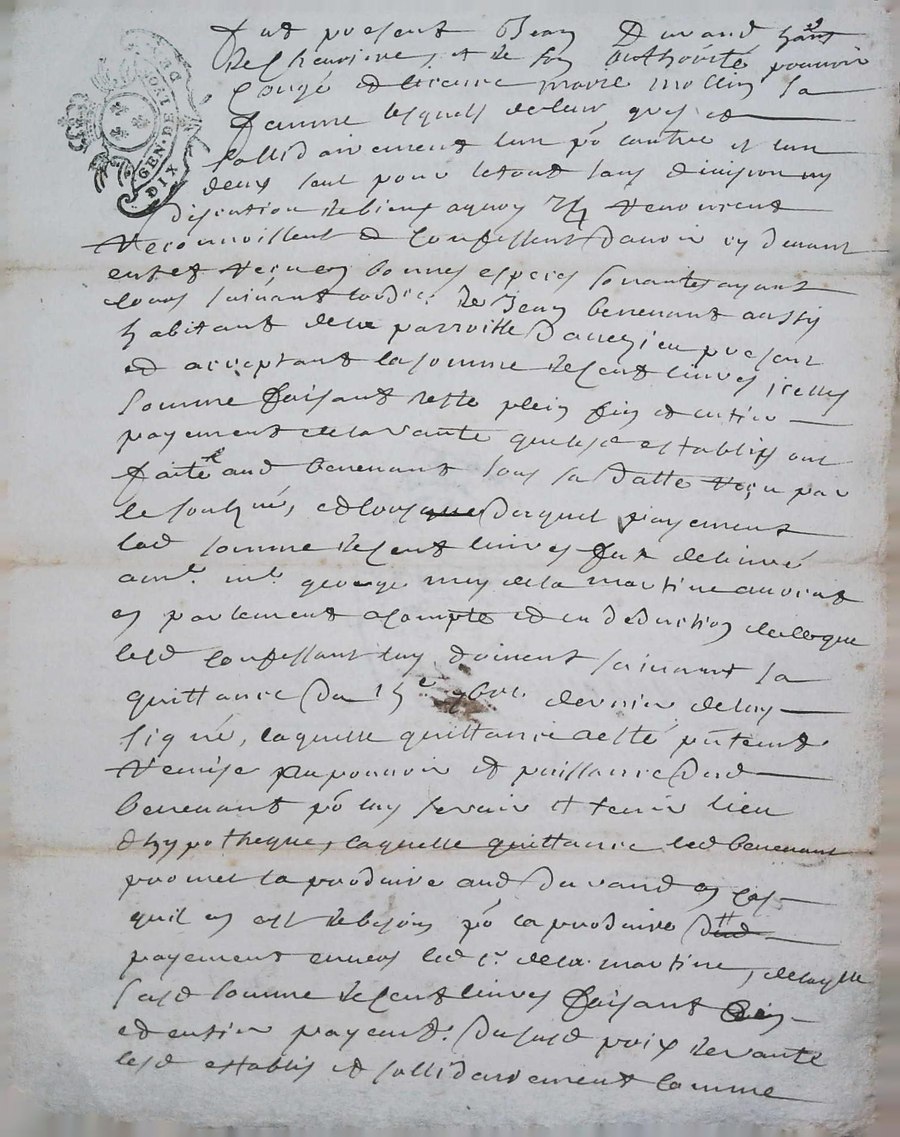 GEN. DE LYON DE
DIX
Fut present Jean Durand hant
de Cheurine, et de son authorité pouvoir
Congé et licence marie mollin sa
femme lesquels de leur gres et
sollidairement lun po lautre et lun
deux seul pour le tout sans division ny
discution de biens a quoy Ils renoncent
reconnoissent et confessent davoir cy devant
eu et reçu en bonnes especes sonantes ayant
cours suivant lordre de Jean benenant aussy
habitant de la parroisse present
et acceptant la somme de cent livres icelle
somme faisant reste plein fin et entier
payement de la vante que lesd establis ont
faite aud benenant sous sa datte reçu par
le soubné, et lors duquel payement
lad somme de cent livres fut delivré
a mr. me george mey de la martine avocat
en parlement acompte et en deduction de ce que
lesd confessant luy doivent suivant sa
quittance du 15e 9bre. dernier de luy
signé, laquelle quittance a esté putement
remise au pouvoir et puissance dud
benenant po luy servir et tenir lieu
dhypotheque, laquelle quittance led benenant
promet la produire aud durand en cas
quil en est de besoin po la produire
payement envers led sr. de la martine, de laquelle
susd somme de cent livres faisant fin
et entier payemt. du susd prix de vante
lesd establis et sollidairement comme